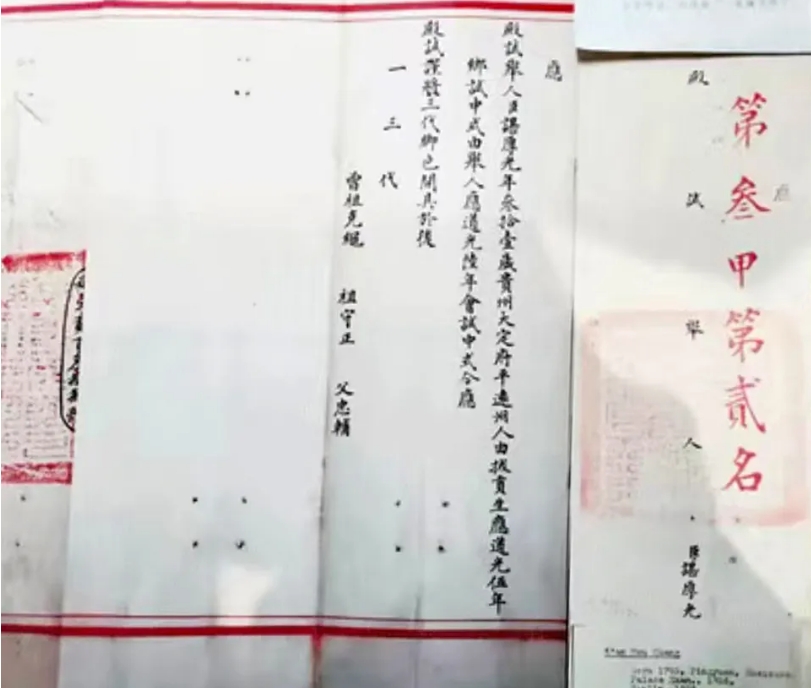 應
第叁甲第貳名
殿試舉人臣諶厚光
應
殿試舉人臣諶厚光年叁拾壹歲貴州大定府平遠州人由拔貢生應道光伍年
鄉試中式由舉人應道光陸年會試中式今應
殿試謹將三代腳色開具於後
一三代
曾祖克繩 祖守正 父忠輔
Palace Exam.,